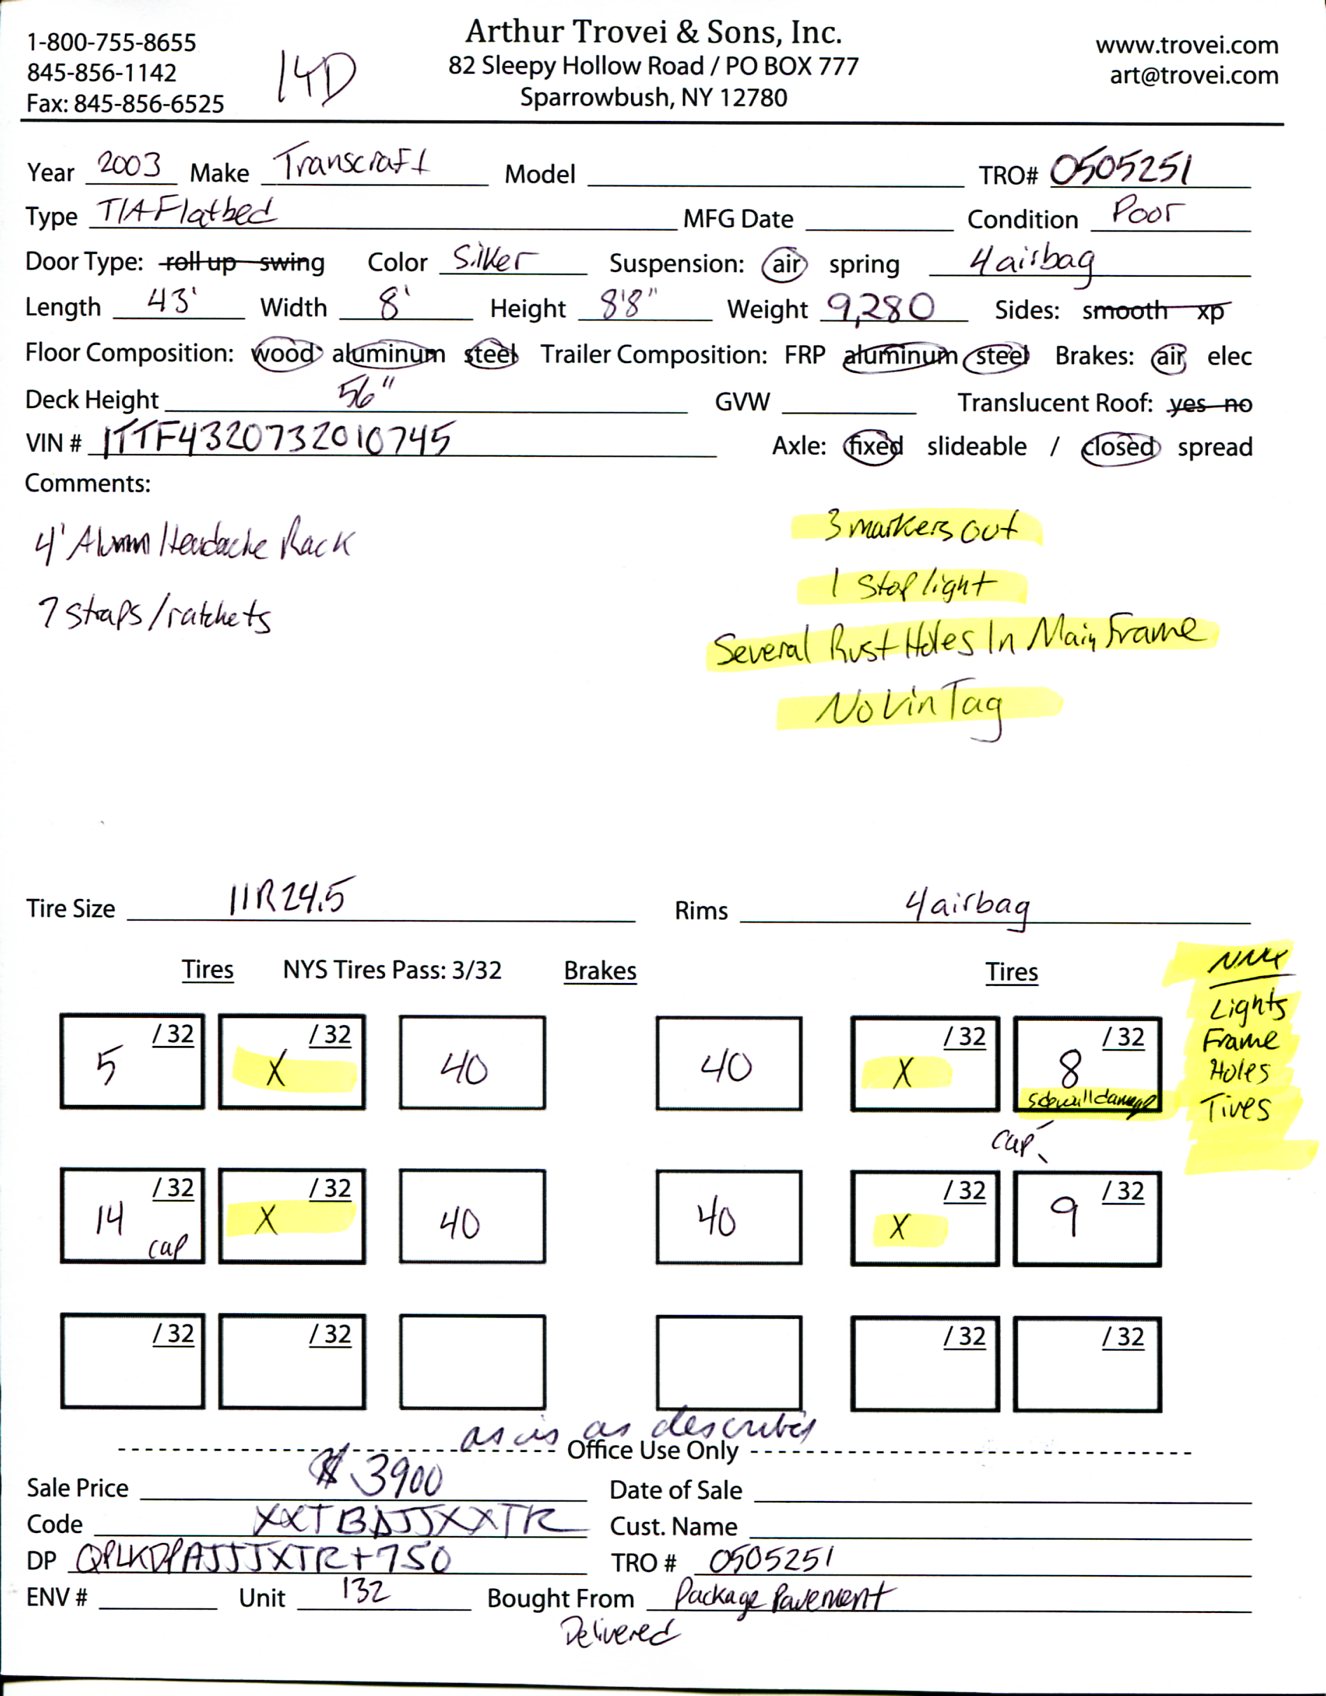 Arthur Trovei & Sons, Inc.
1-800-755-8655 82 Sleepy Hollow Road / PO BOX 777 www.trovei.com
845-856-1142 14D Sparrowbush, NY 12780 art@trovei.com
Fax: 845-856-6525
Year 2003 Make Transcraft Model TRO# 0505251
Type T/A Flatbed MFG Date Condition Poor
Door Type: roll up swing Color Silver Suspension: air spring 4 airbag
Length 43' Width 8' Height 8'8" Weight 9,280 Sides: smooth xp
Floor Composition: wood aluminum steel Trailer Composition: FRP aluminum steel Brakes: air elec
Deck Height 56" GVW Translucent Roof: yes no
VIN # 1TTF4320732010745 Axle: fixed slideable / closed spread
Comments:
4' Alumn Headache Rack
7 straps/ratchets
3 markers out
1 Stop light
Several Rust Holes In Main Frame
No Vin Tag
Tire Size 11R24.5 Rims 4 airbag
Tires NYS Tires Pass: 3/32 Brakes Tires
Lights
Frame
Holes
Tires
5 /32 X /32 40 40 X /32 8 /32
sidewall damage
cap
14 /32 X /32 40 40 X /32 9 /32
cap
/32 /32 /32 /32
as is as described
Office Use Only
Sale Price $3900 Date of Sale
Code XXTBAJJXXTR Cust. Name
DP QPLKDPAJJJXTR+750 TRO # 0505251
ENV # Unit 132 Bought From Package Pavement
Delivered